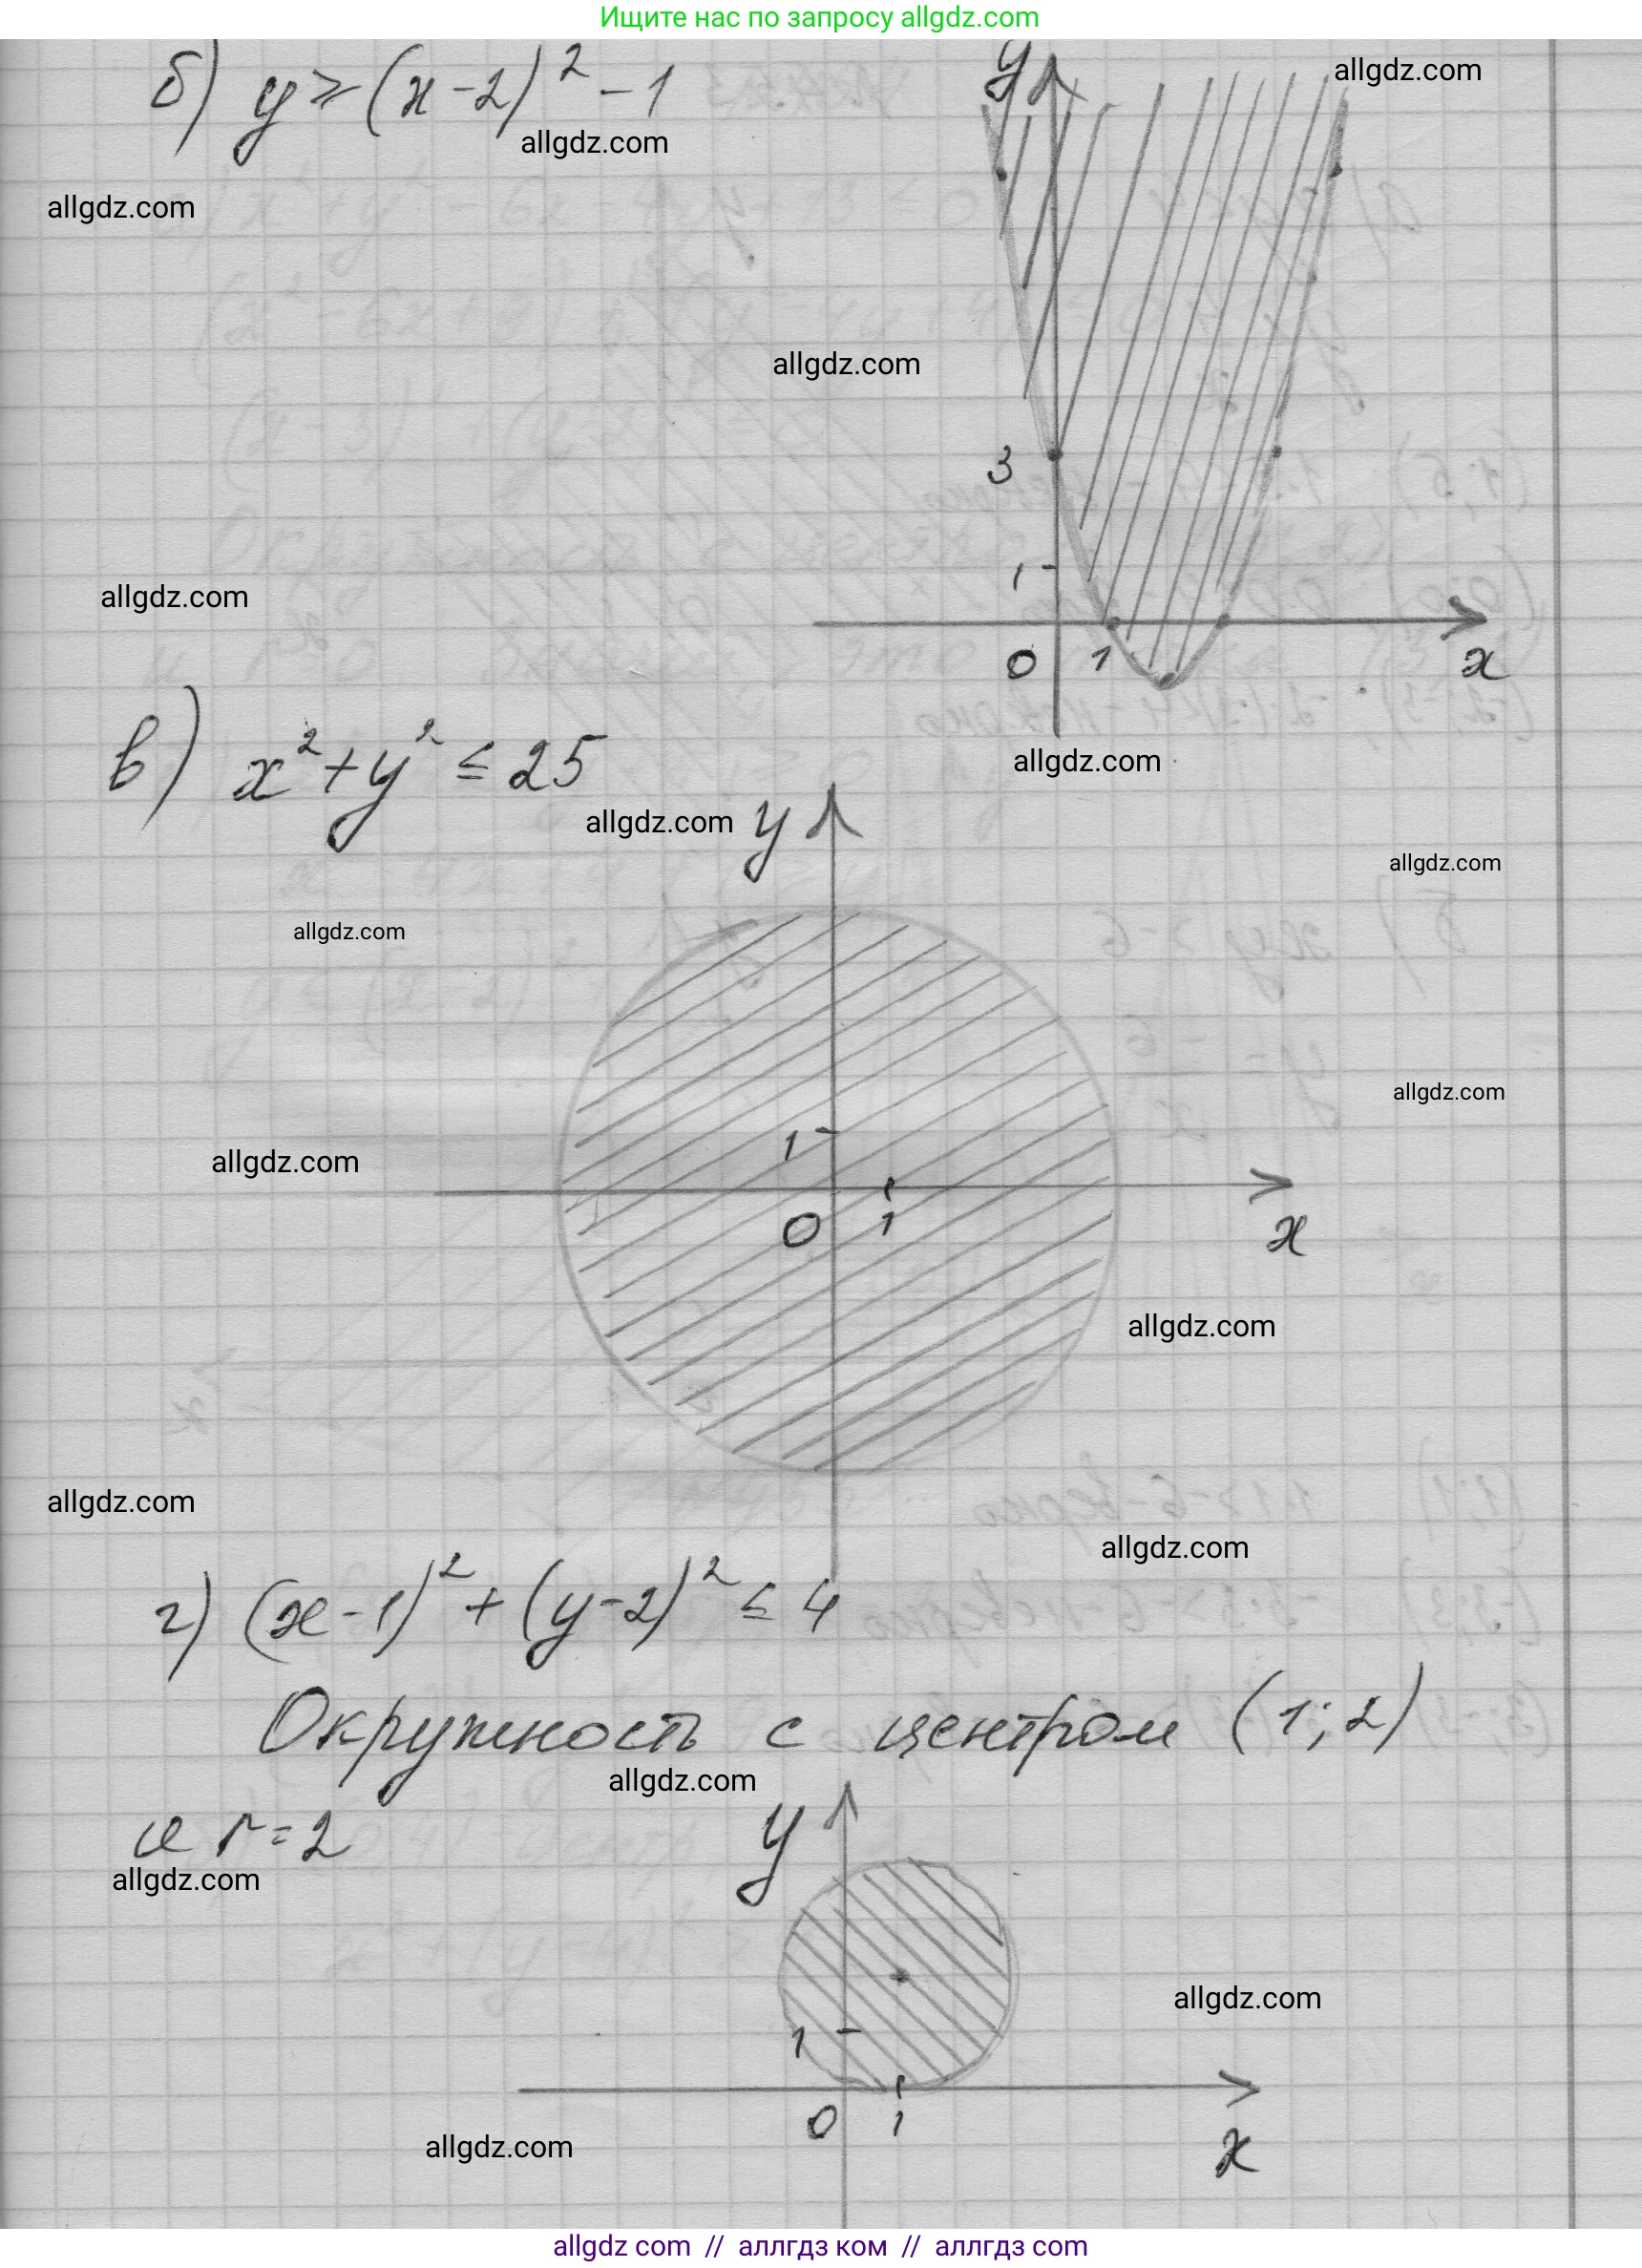 Ищите нас по запросу allgdz.com
б) y ≥ (x-2)² - 1
y
allgdz.com
allgdz.com
allgdz.com
allgdz.com
3
allgdz.com
1
0 1 x
в) x² + y² ≤ 25
allgdz.com
allgdz.com
y
allgdz.com
allgdz.com
allgdz.com
allgdz.com
1
0 1 x
allgdz.com
allgdz.com
allgdz.com
г) (x-1)² + (y-2)² ≤ 4
Окружность с центром (1; 2)
allgdz.com
и r = 2
y
allgdz.com
allgdz.com
1
0 1 x
allgdz.com
allgdz com // аллгдз ком // аллгдз com